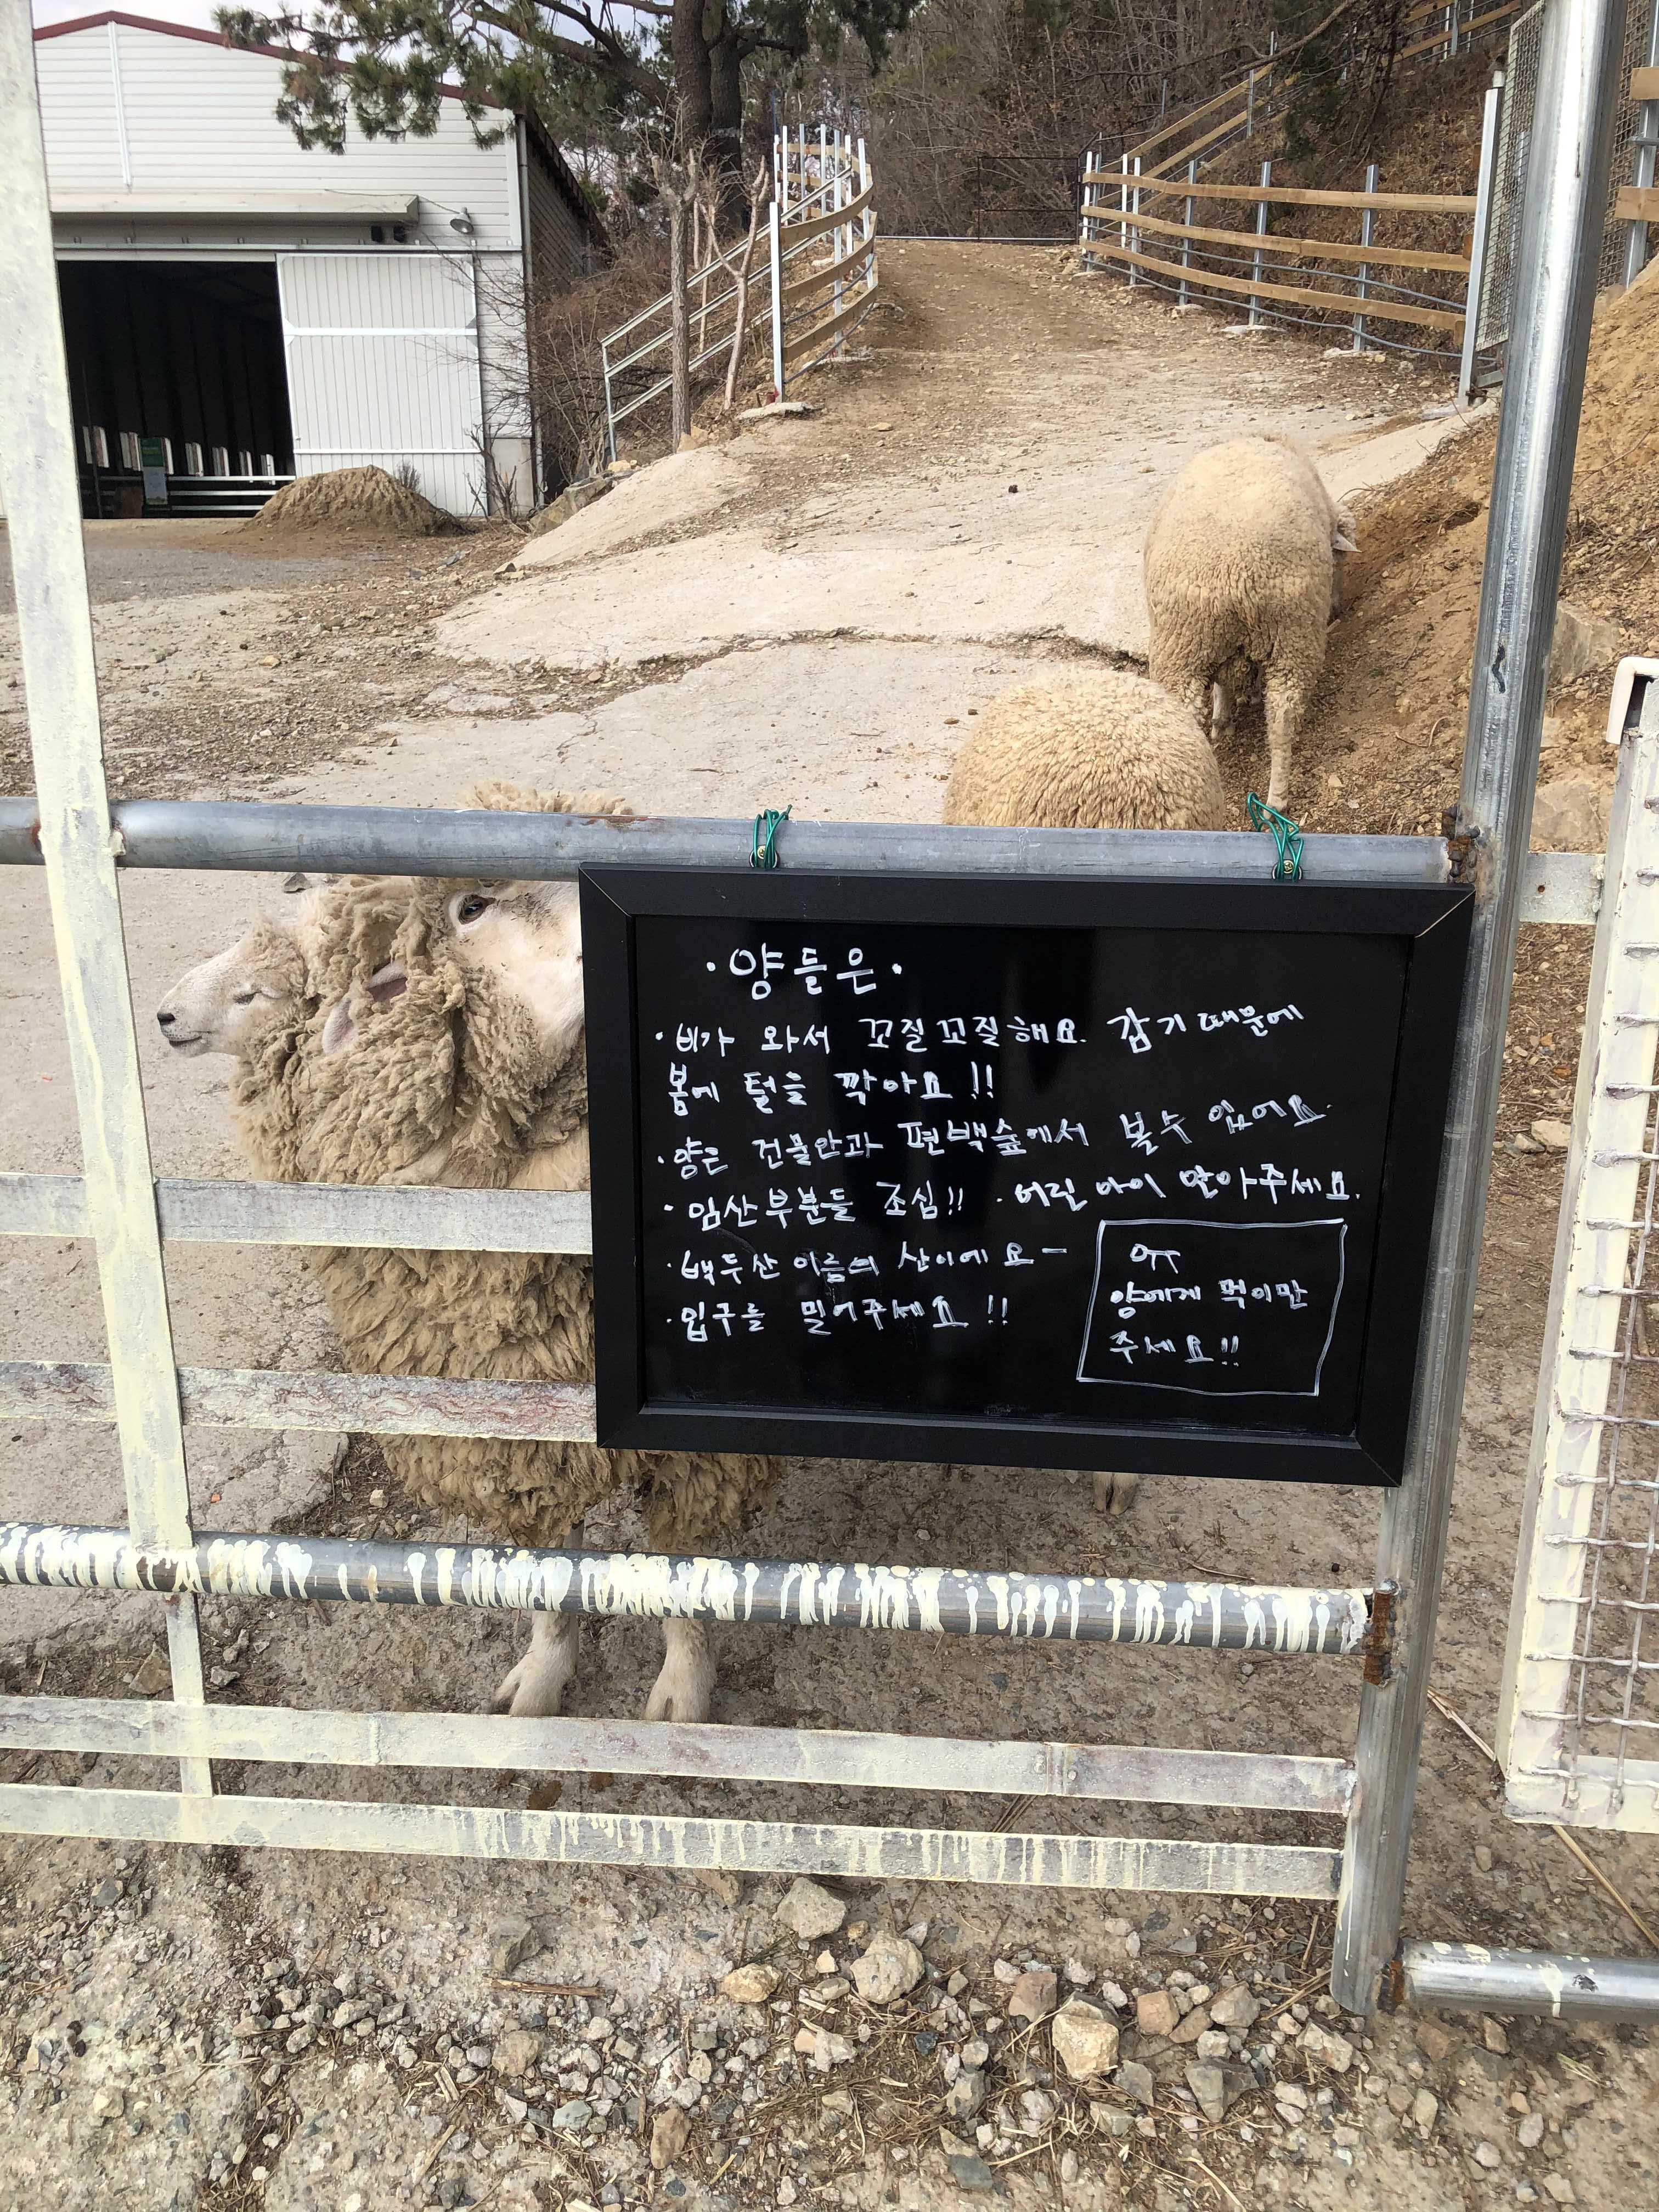 ·양들은·
·비가 와서 꼬질꼬질해요. 감기때문에
봄에 털을 깎아요!!
·양은 건물안과 편백숲에서 볼수 있어요.
·임산부분들 조심!! ·어린아이 안아주세요.
·백두산 이름의 산이에요-
·입구를 밀어주세요!!
양에게 먹이만
주세요!!